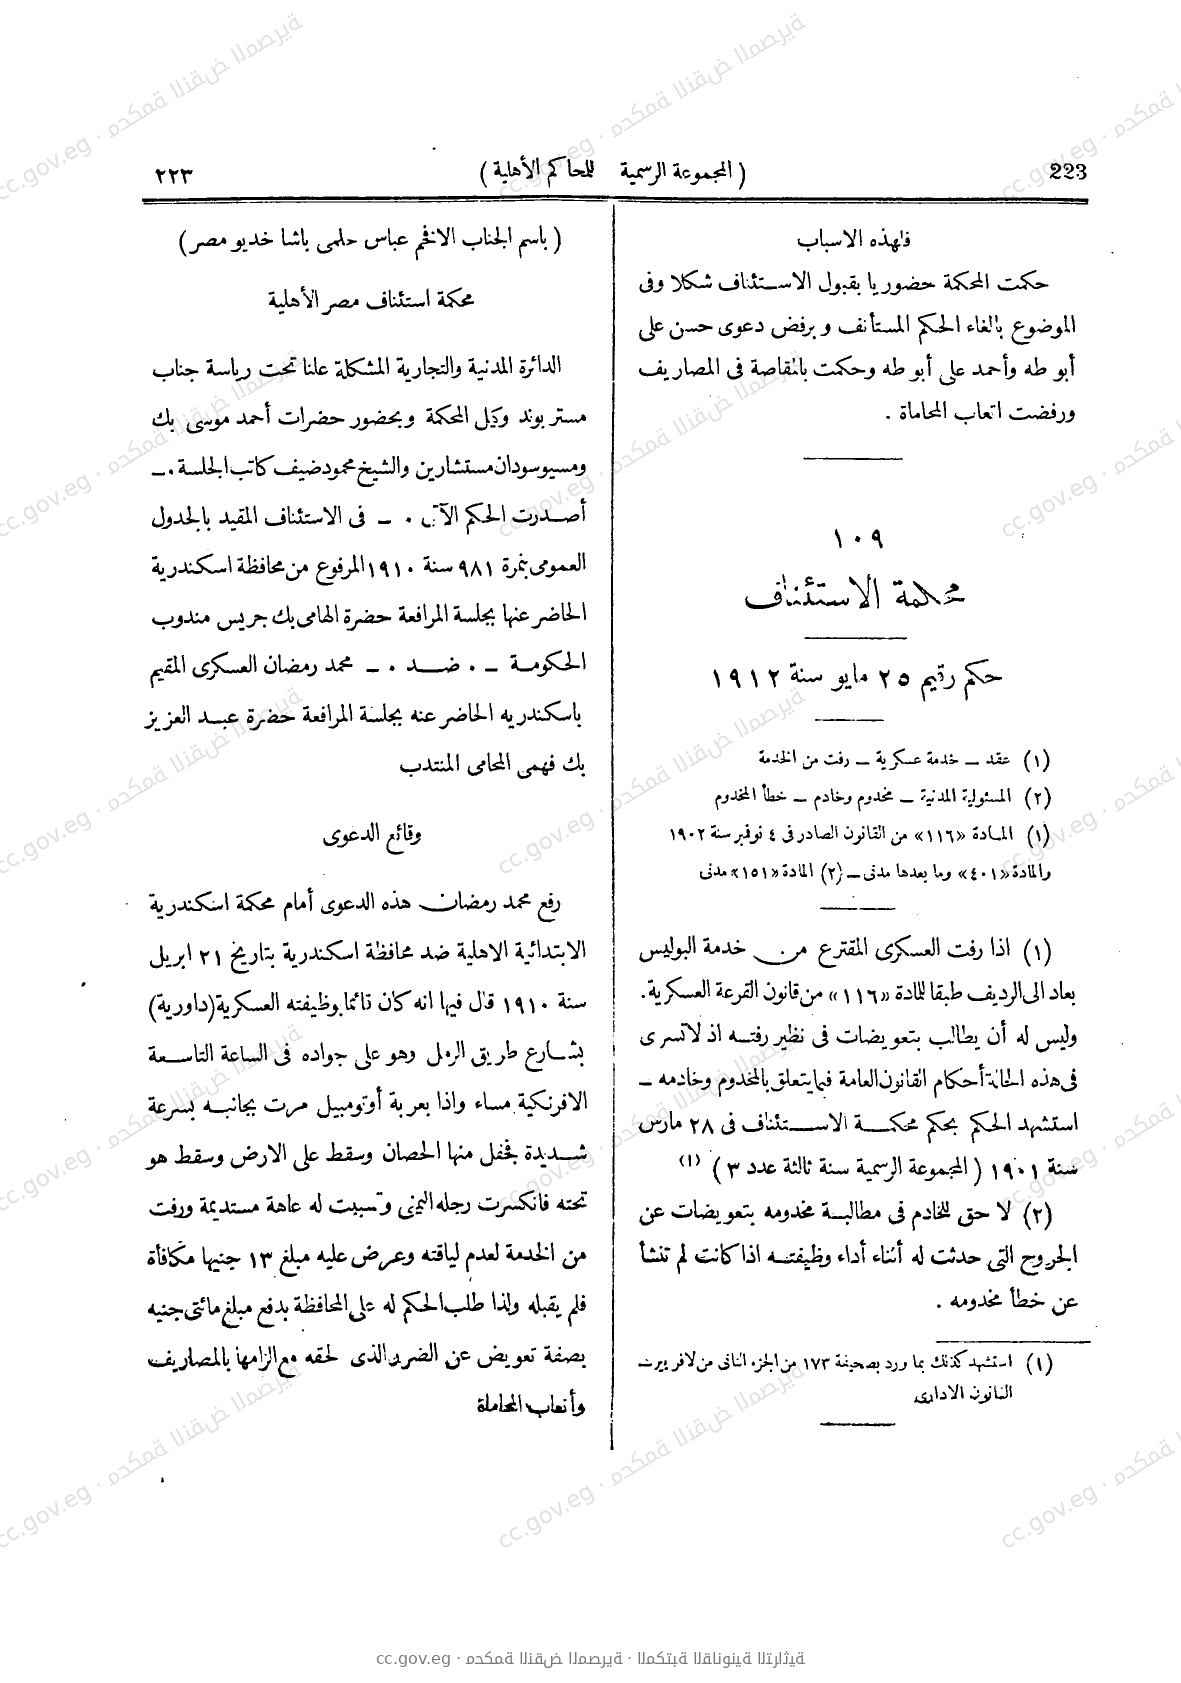 223
( المجموعة الرسمية للمحاكم الأهلية )
٢٢٣
فلهذه الاسباب
حكمت المحكمة حضوريا بقبول الاستئناف شكلا وفى
الموضوع بالغاء الحكم المستأنف وبرفض دعوى حسن على
أبو طه وأحمد على أبو طه وحكمت بالمقاصة فى المصاريف
ورفضت اتعاب المحاماة .
١٠٩
محكمة الاستئناف
حكم رقيم ٢٥ مايو سنة ١٩١٢
(١) عقد ــ خدمة عسكرية ــ رفت من الخدمة
(٢) المسئولية المدنية ــ مخدوم وخادم ــ خطأ المخدوم
(١) المادة «١١٦» من القانون الصادر فى ٤ نوفمبر سنة ١٩٠٢
والمادة «٤٠١» وما بعدها مدنى ــ (٢) المادة «١٥١» مدنى
(١) اذا رفت العسكرى المقترع من خدمة البوليس
يعاد الى الرديف طبقا للمادة «١١٦» من قانون القرعة العسكرية.
وليس له أن يطالب بتعويضات فى نظير رفته اذ لا تسرى
فى هذه الحالة أحكام القانون العامة فيما يتعلق بالمخدوم وخادمه ــ
استشهد الحكم بحكم محكمة الاستئناف فى ٢٨ مارس
سنة ١٩٠١ ( المجموعة الرسمية سنة ثالثة عدد ٣ ) (١)
(٢) لا حق للخادم فى مطالبة مخدومه بتعويضات عن
الجروح التى حدثت له أثناء أداء وظيفته اذا كانت لم تنشأ
عن خطأ مخدومه .
(١) استشهد كذلك بما ورد بصحيفة ١٧٣ من الجزء الثانى من لافريريت
القانون الادارى
( باسم الجناب الافخم عباس حلمى باشا خديو مصر )
محكمة استئناف مصر الأهلية
الدائرة المدنية والتجارية المشكلة علنا تحت رياسة جناب
مستر بوند وكيل المحكمة وبحضور حضرات أحمد موسى بك
ومسيو سودان مستشارين والشيخ محمود ضيف كاتب الجلسة .ــ
أصدرت الحكم الآتى . ــ فى الاستئناف المقيد بالجدول
العمومى بنمرة ٩٨١ سنة ١٩١٠ المرفوع من محافظة اسكندرية
الحاضر عنها بجلسة المرافعة حضرة الهامى بك جريس مندوب
الحكومة ــ . ضد . ــ محمد رمضان العسكرى المقيم
باسكندريه الحاضر عنه بجلسة المرافعة حضرة عبد العزيز
بك فهمى المحامى المنتدب
وقائع الدعوى
رفع محمد رمضان هذه الدعوى أمام محكمة اسكندرية
الابتدائية الاهلية ضد محافظة اسكندرية بتاريخ ٢١ ابريل
سنة ١٩١٠ قال فيها انه كان قائما بوظيفته العسكرية (داورية)
بشارع طريق الرمل وهو على جواده فى الساعة التاسعة
الافرنكية مساء واذا بعربة أوتومبيل مرت بجانبه بسرعة
شديدة فجفل منها الحصان وسقط على الارض وسقط هو
تحته فانكسرت رجله اليمنى وتسببت له عاهة مستديمة ورفت
من الخدمة لعدم لياقته وعرض عليه مبلغ ١٣ جنيها مكافأة
فلم يقبله ولذا طلب الحكم له على المحافظة بدفع مبلغ مائتى جنيه
بصفة تعويض عن الضرر الذى لحقه مع الزامها بالمصاريف
وأتعاب المحاماة
cc.gov.eg · محكمة النقض المصرية · المكتبة القانونية التراثية